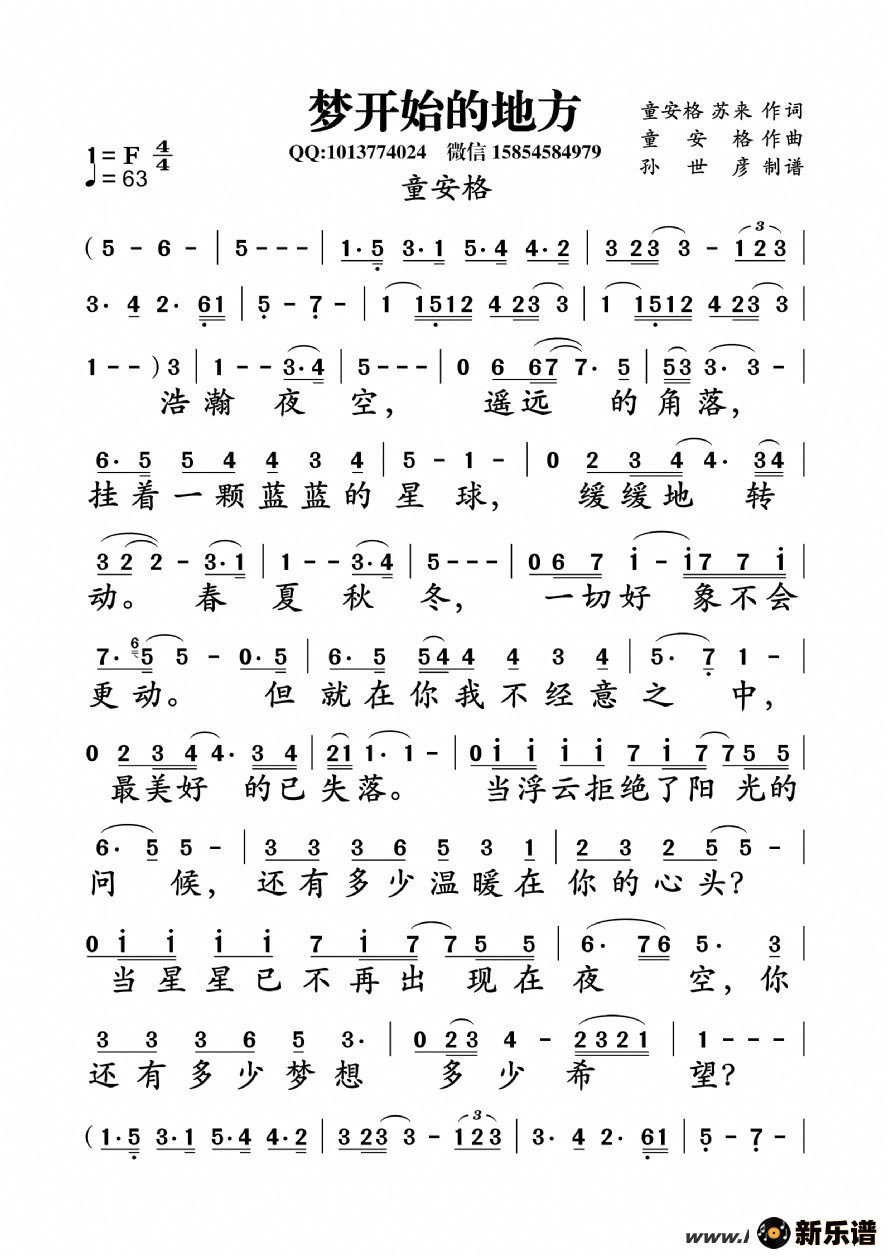 梦开始的地方
童安格 苏来 作词
1=F 4/4
QQ:1013774024 微信 15854584979
童 安 格 作曲
♩=63
孙 世 彦 制谱
童安格
( 5 - 6 - | 5 - - - | 1· 5 3· 1 5· 4 4· 2 | 3 2 3 3 - 1 2 3 |
3· 4 2· 6 1 | 5 - 7 - | 1 1 5 1 2 4 2 3 3 | 1 1 5 1 2 4 2 3 3 |
1 - - ) 3 | 1 - - 3· 4 | 5 - - - | 0 6 6 7 7· 5 | 5 3 3· 3 - |
浩 瀚 夜 空， 遥 远 的 角 落，
6· 5 5 4 4 3 4 | 5 - 1 - | 0 2 3 4 4· 3 4 |
挂 着 一 颗 蓝 蓝 的 星 球， 缓 缓 地 转
3 2 2 - 3· 1 | 1 - - 3· 4 | 5 - - - | 0 6 7 i - i 7 7 i |
动。 春 夏 秋 冬， 一 切 好 象 不 会
7· 6 5 5 - 0· 5 | 6· 5 5 4 4 4 3 4 | 5· 7 1 - |
更 动。 但 就 在 你 我 不 经 意 之 中，
0 2 3 4 4· 3 4 | 2 1 1· 1 - | 0 i i i 7 i 7 7 5 5 |
最 美 好 的 已 失 落。 当 浮 云 拒 绝 了 阳 光 的
6· 5 5 - | 3 3 3 6 5 3 1 | 2 3 2 5 5 - |
问 候， 还 有 多 少 温 暖 在 你 的 心 头？
0 i i i i 7 i 7 7 5 5 | 6· 7 6 5· 3 |
当 星 星 已 不 再 出 现 在 夜 空，你
3 3 3 6 5 3· | 0 2 3 4 - 2 3 2 1 | 1 - - - |
还 有 多 少 梦 想 多 少 希 望？
( 1· 5 3· 1 5· 4 4· 2 | 3 2 3 3 - 1 2 3 | 3· 4 2· 6 1 | 5 - 7 - |
www.
新乐谱